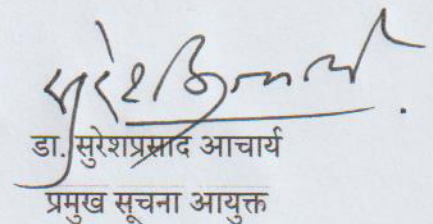 डा. सुरेशप्रसाद आचार्य
प्रमुख सूचना आयुक्त